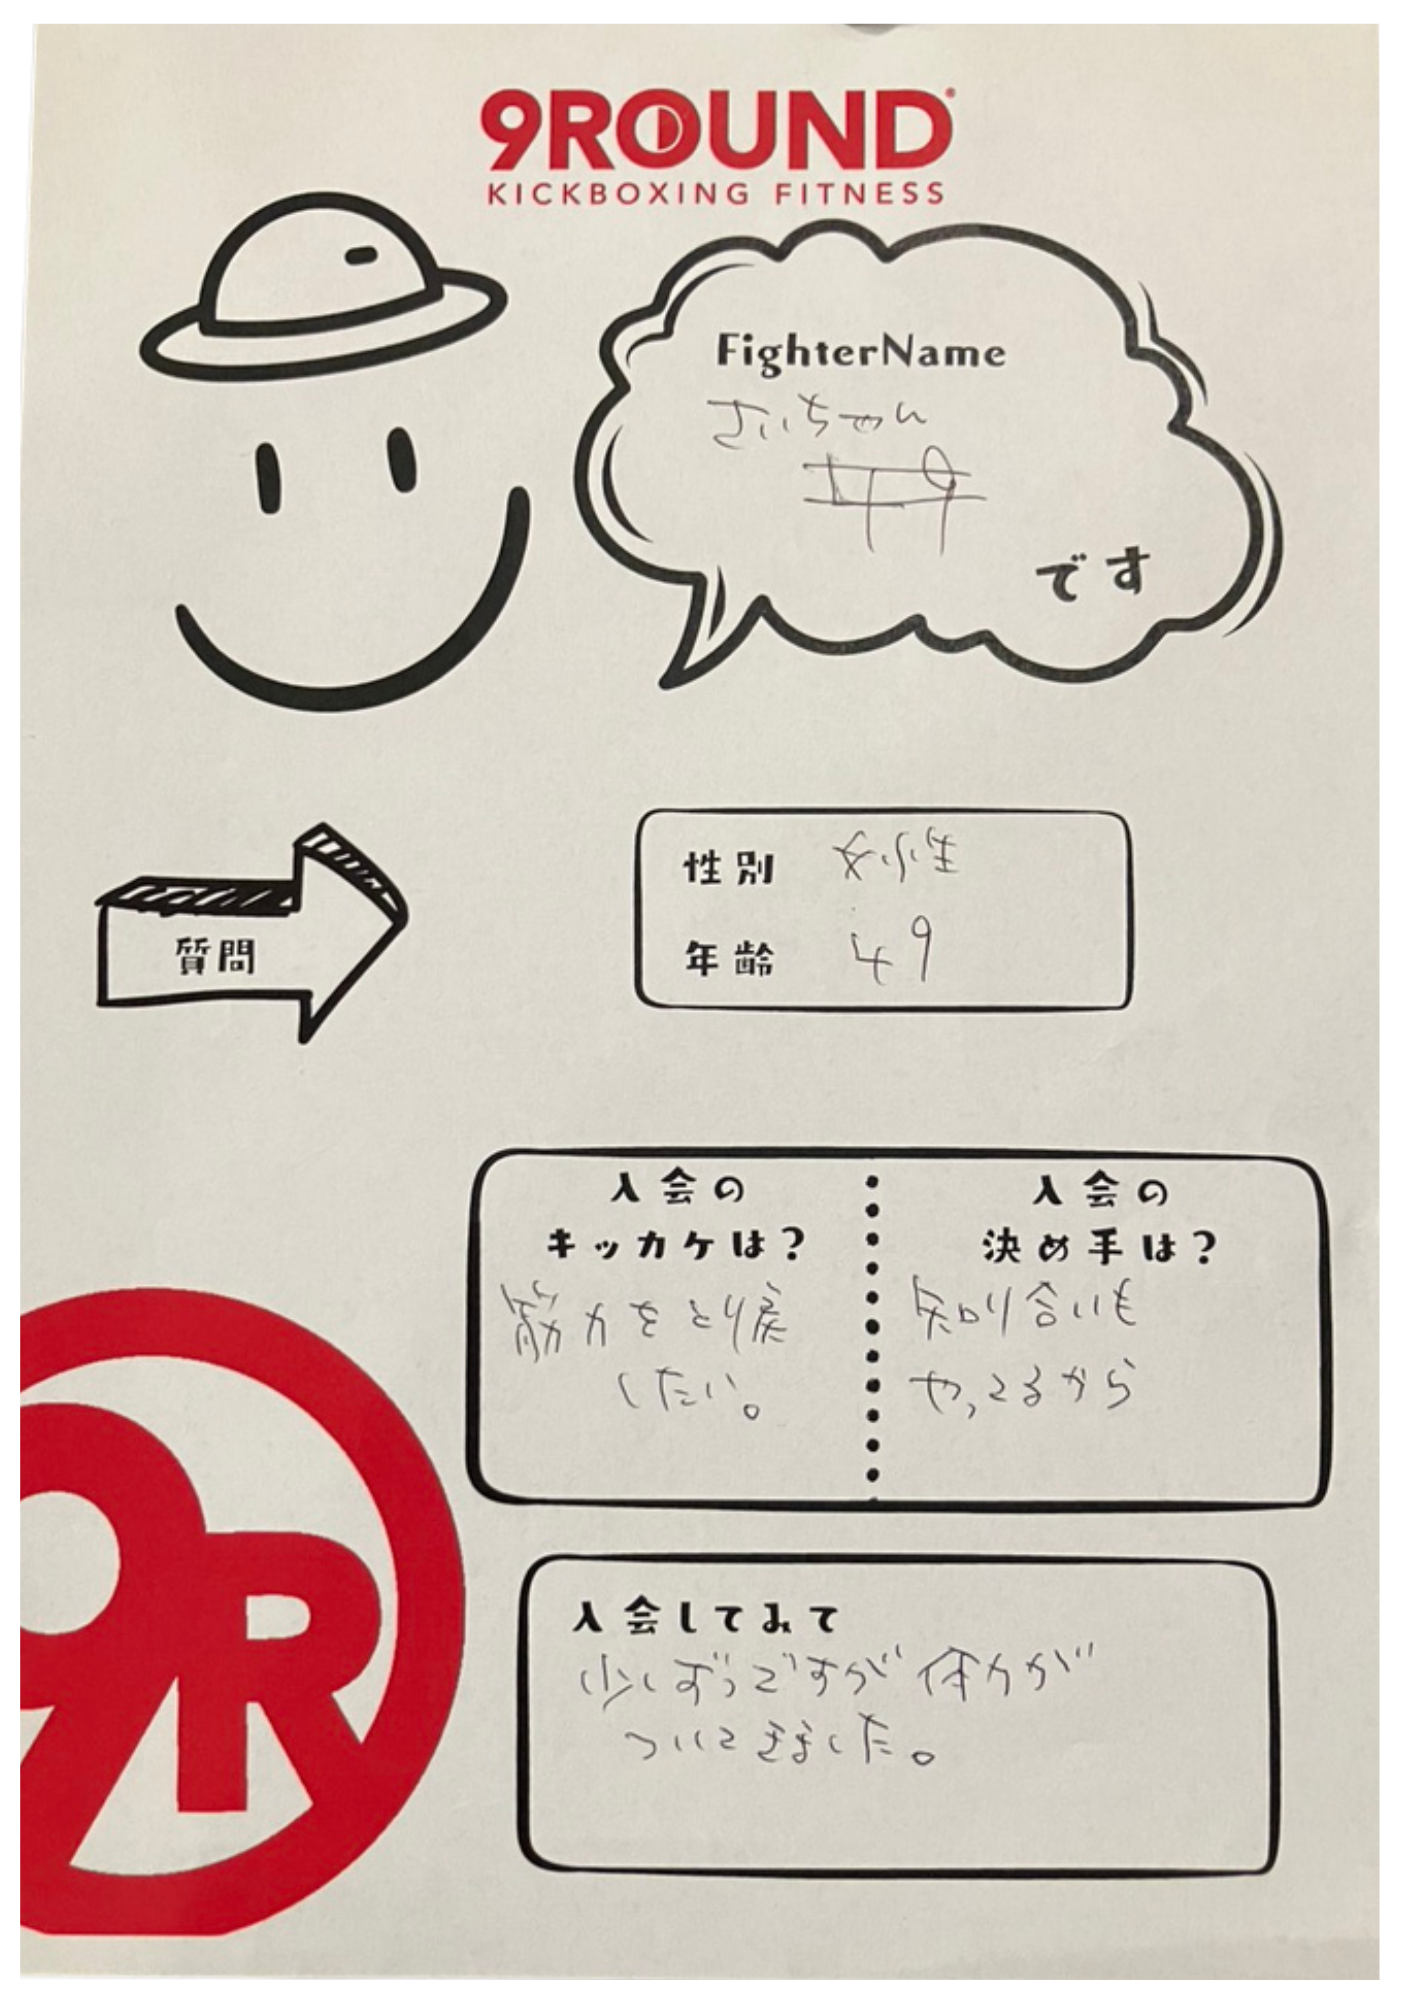 9ROUND
KICKBOXING FITNESS
FighterName
さいちゃん
49
です
質問
性別 女性
年齢 49
入会の
キッカケは?
筋力をとり戻
したい。
入会の
決め手は?
知り合いも
やってるから
入会してみて
少しずつですが体力が
ついてきました。
9R